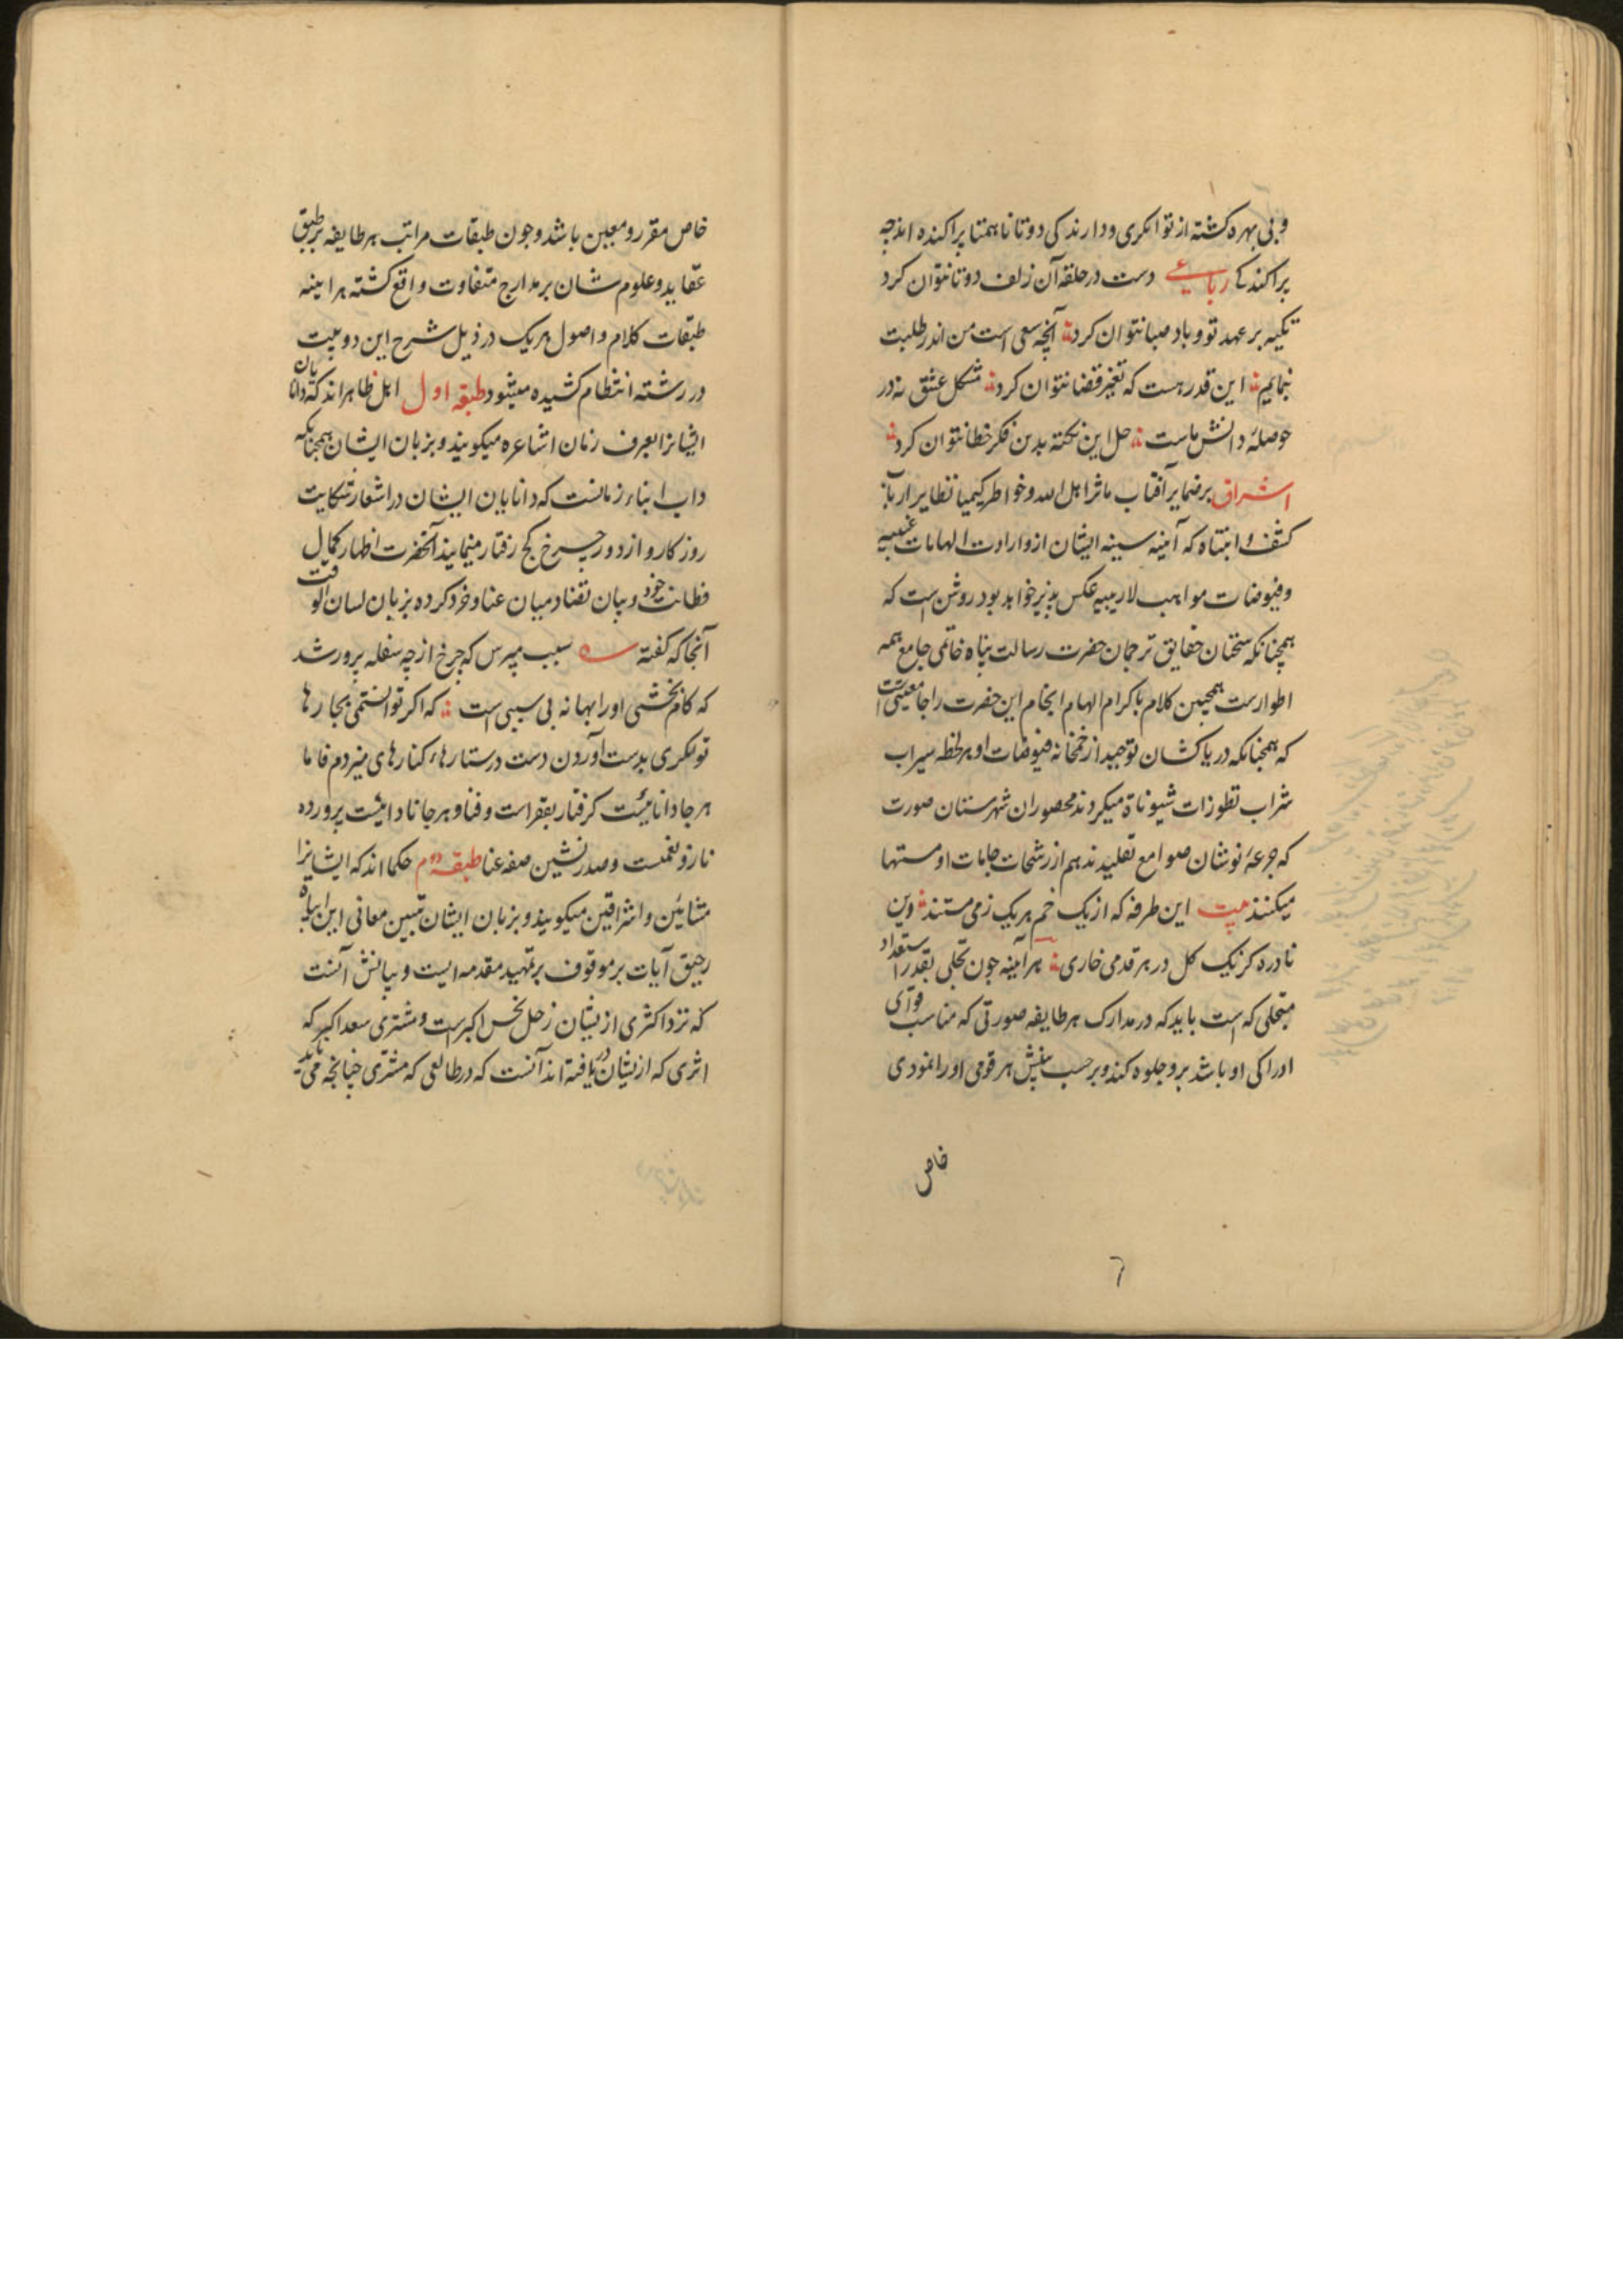 و بی بهره کشته از توانکری و دارندکی دو تا ناهمتا پراکنده اند چه
پراکندکے رباعے دست در حلقه آن زلف دو تا نتوان کرد
تکیه بر عهد تو و باد صبا نتوان کرد آنچه سعی است من اندر طلبت
بنمایم این قدر هست که تغیر قضا نتوان کرد مشکل عشق نه در
حوصلهٔ دانش ماست حل این نکته بدین فکر خطا نتوان کرد
اشراق بر ضمایر آفتاب ماثر اهل الله و خواطر کیمیا نظایر ارباب
کشف و انتباه که آینه سینه ایشان از واردات الهامات غیبیه
و فیوضات مواهب لاریبیه عکس پذیر خواهد بود روشن است که
همچنانکه سخنان حقایق ترجمان حضرت رسالت پناه خاتمی جامع همه
اطوارست همچنین کلام با کرام الهام انجام این حضرت را جامعیتی است
که همچنانکه دریاکشان توحید از خمخانه فیوضات او هر لحظه سیراب
شراب میکردند محصوران شهرستان صورت
که جرعهٔ نوشان صوامع تقلیدند هم از رشحات جامات او مستیها
میکنند بیت این طرفه که از یک خم هر یک ز می مستند وین
نادره کز یک کل در هر قدمی خاری هر آینه چون تجلی بقدر استعداد
متجلی که است باید که در مدارک هر طایفه صورتی که مناسب قوای
ادراکی او باشد برو جلوه کند و بر حسب بینش هر قومی او را نمودی
خاص
٦
خاص مقرر و معین باشد و چون طبقات مراتب هر طایفه بر طبق
عقاید و علوم شان بر مدارج متفاوت واقع کشته هر اینه
طبقات کلام و اصول هر یک در ذیل شرح این دو بیت
در رشته انتظام کشیده میشود طبقه اول اهل ظاهراند که دانایان
ایشانرا بعرف زمان اشاعره میکویند و بزبان ایشان همچنانکه
داب ابناء زمانست که دانایان ایشان در اشعار شکایت
روزکار و از دور چرخ کج رفتار مینمایند آنحضرت اظهار کمال
فطانت خود و بیان تضاد میان غنا و خرد کرده بزبان لسان الوقت
آنجا که کفته سبب مپرس که چرخ از چه سفله پرور شد
که کام بخشی او را بهانه بی سببی است که اکر توانستمی بجارها
توانکری بدست آوردن دست در ستارهاء کنارهای میزدم فاما
هر جا داناییست کرفتار بفقر است و فنا و هر جا نادانیست پرورده
ناز و نعمت و صدرنشین صفه غنا طبقه دوم حکما اند که ایشانرا
مشائین و اشراقین میکویند و بزبان ایشان تبیین معانی این ابیات
رحیق آیات بر موقوف بر تمهید مقدمه ایست و بیانش آنست
که نزد اکثری ازیشان زحل نحس اکبر است و مشتری سعد اکبر که
اثری که ازیشان دریافته اند آنست که در طالعی که مشتری چنانچه می باید